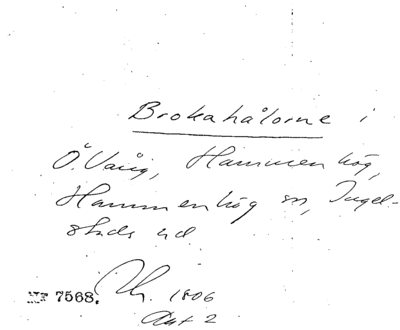 Brokahålorne i
Ö. Vång, Hammenhög,
Hammenhög sn, Ingel-
stads hd.
Nr 7568. 1806
Akt 2